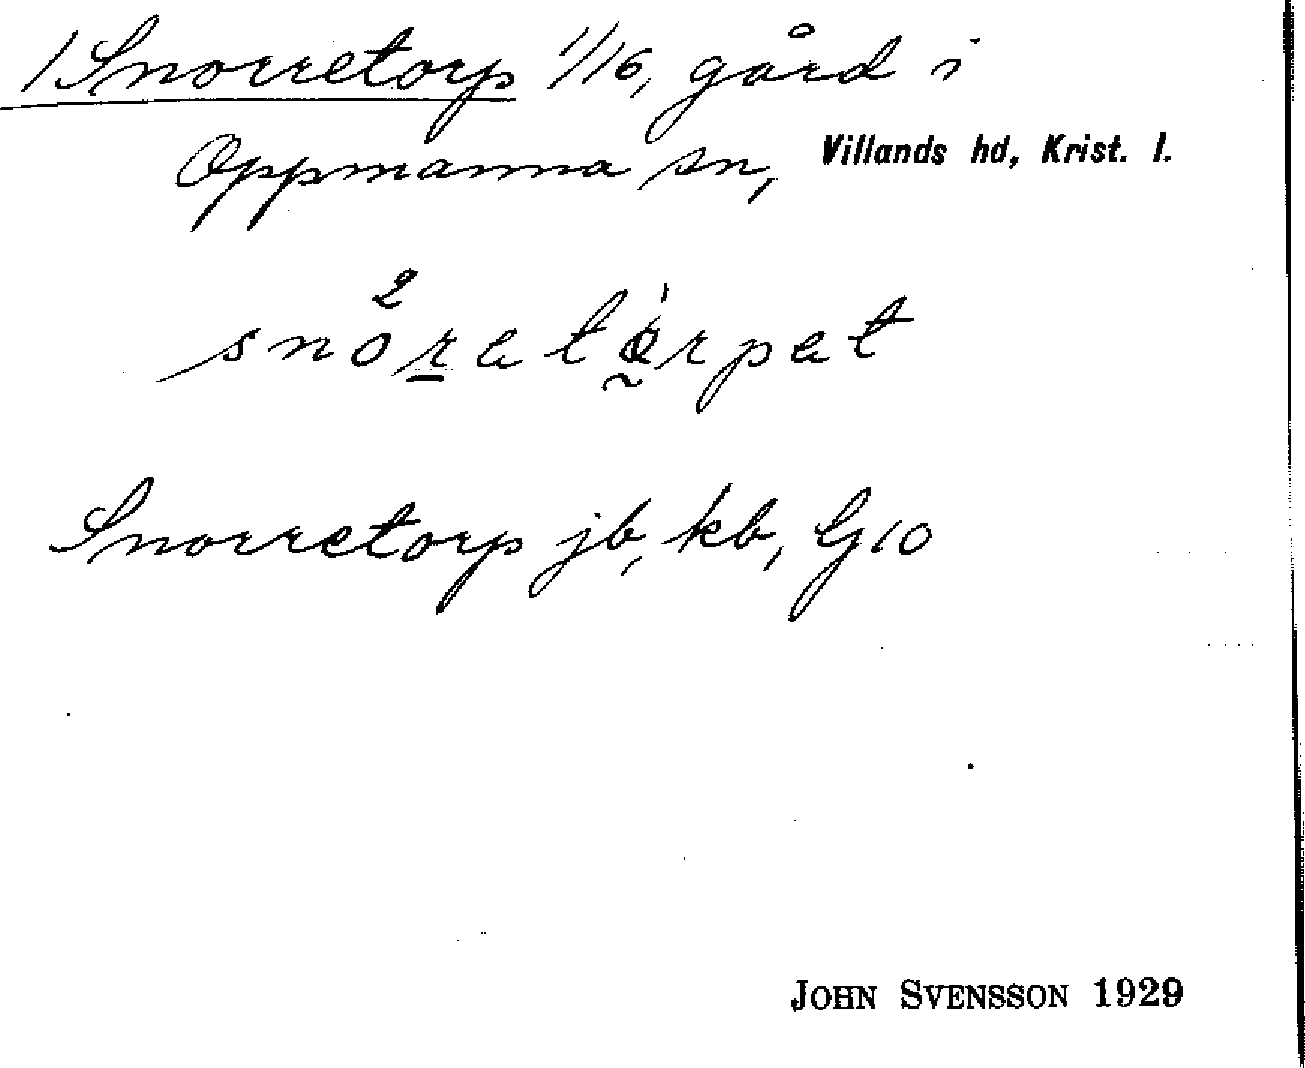 1 Snorretorp 1/16, gård i
Oppmanna sn, Villands hd, Krist. l.
snåretorpet
Snorretorp jb, kb, G10
JOHN SVENSSON 1929